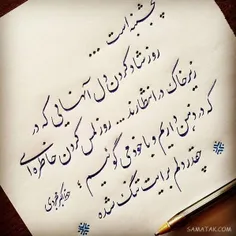 پنجشنبه است ...
روز شاد کردن دل آنهایی که در
زیر خاک در انتظارند ... روز لمس کردن خاطره ای
که در ذهن داریم و با خود می گوئیم :
چقدر دلم برایت تنگ شده
SAMATAK.COM